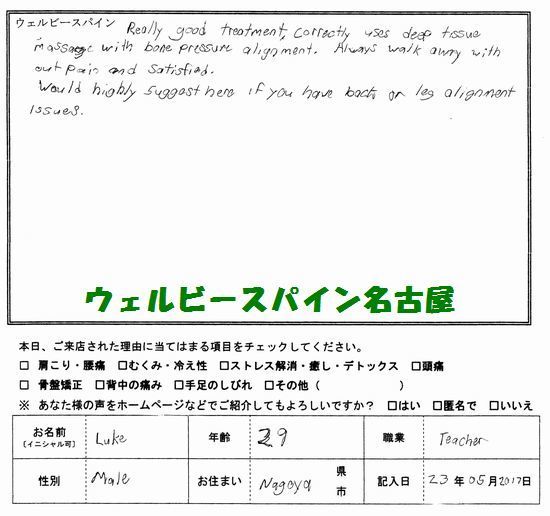 ウェルビースパイン Really good treatment, correctly uses deep tissue
massage with bone pressure alignment. Always walk away with
out pain and satisfied.
Would highly suggest here if you have back or leg alignment
issues.
ウェルビースパイン名古屋
本日、ご来店された理由に当てはまる項目をチェックしてください。
□ 肩こり・腰痛 □むくみ・冷え性 □ストレス解消・癒し・デトックス □頭痛
□ 骨盤矯正 □背中の痛み □手足のしびれ □その他（ ）
※ あなた様の声をホームページなどでご紹介してもよろしいですか？ □はい □匿名で □いいえ
お名前 (イニシャル可) Luke 年齢 29 職業 Teacher
性別 Male お住まい Nagoya 県 市 記入日 23 年 05 月 2017 日